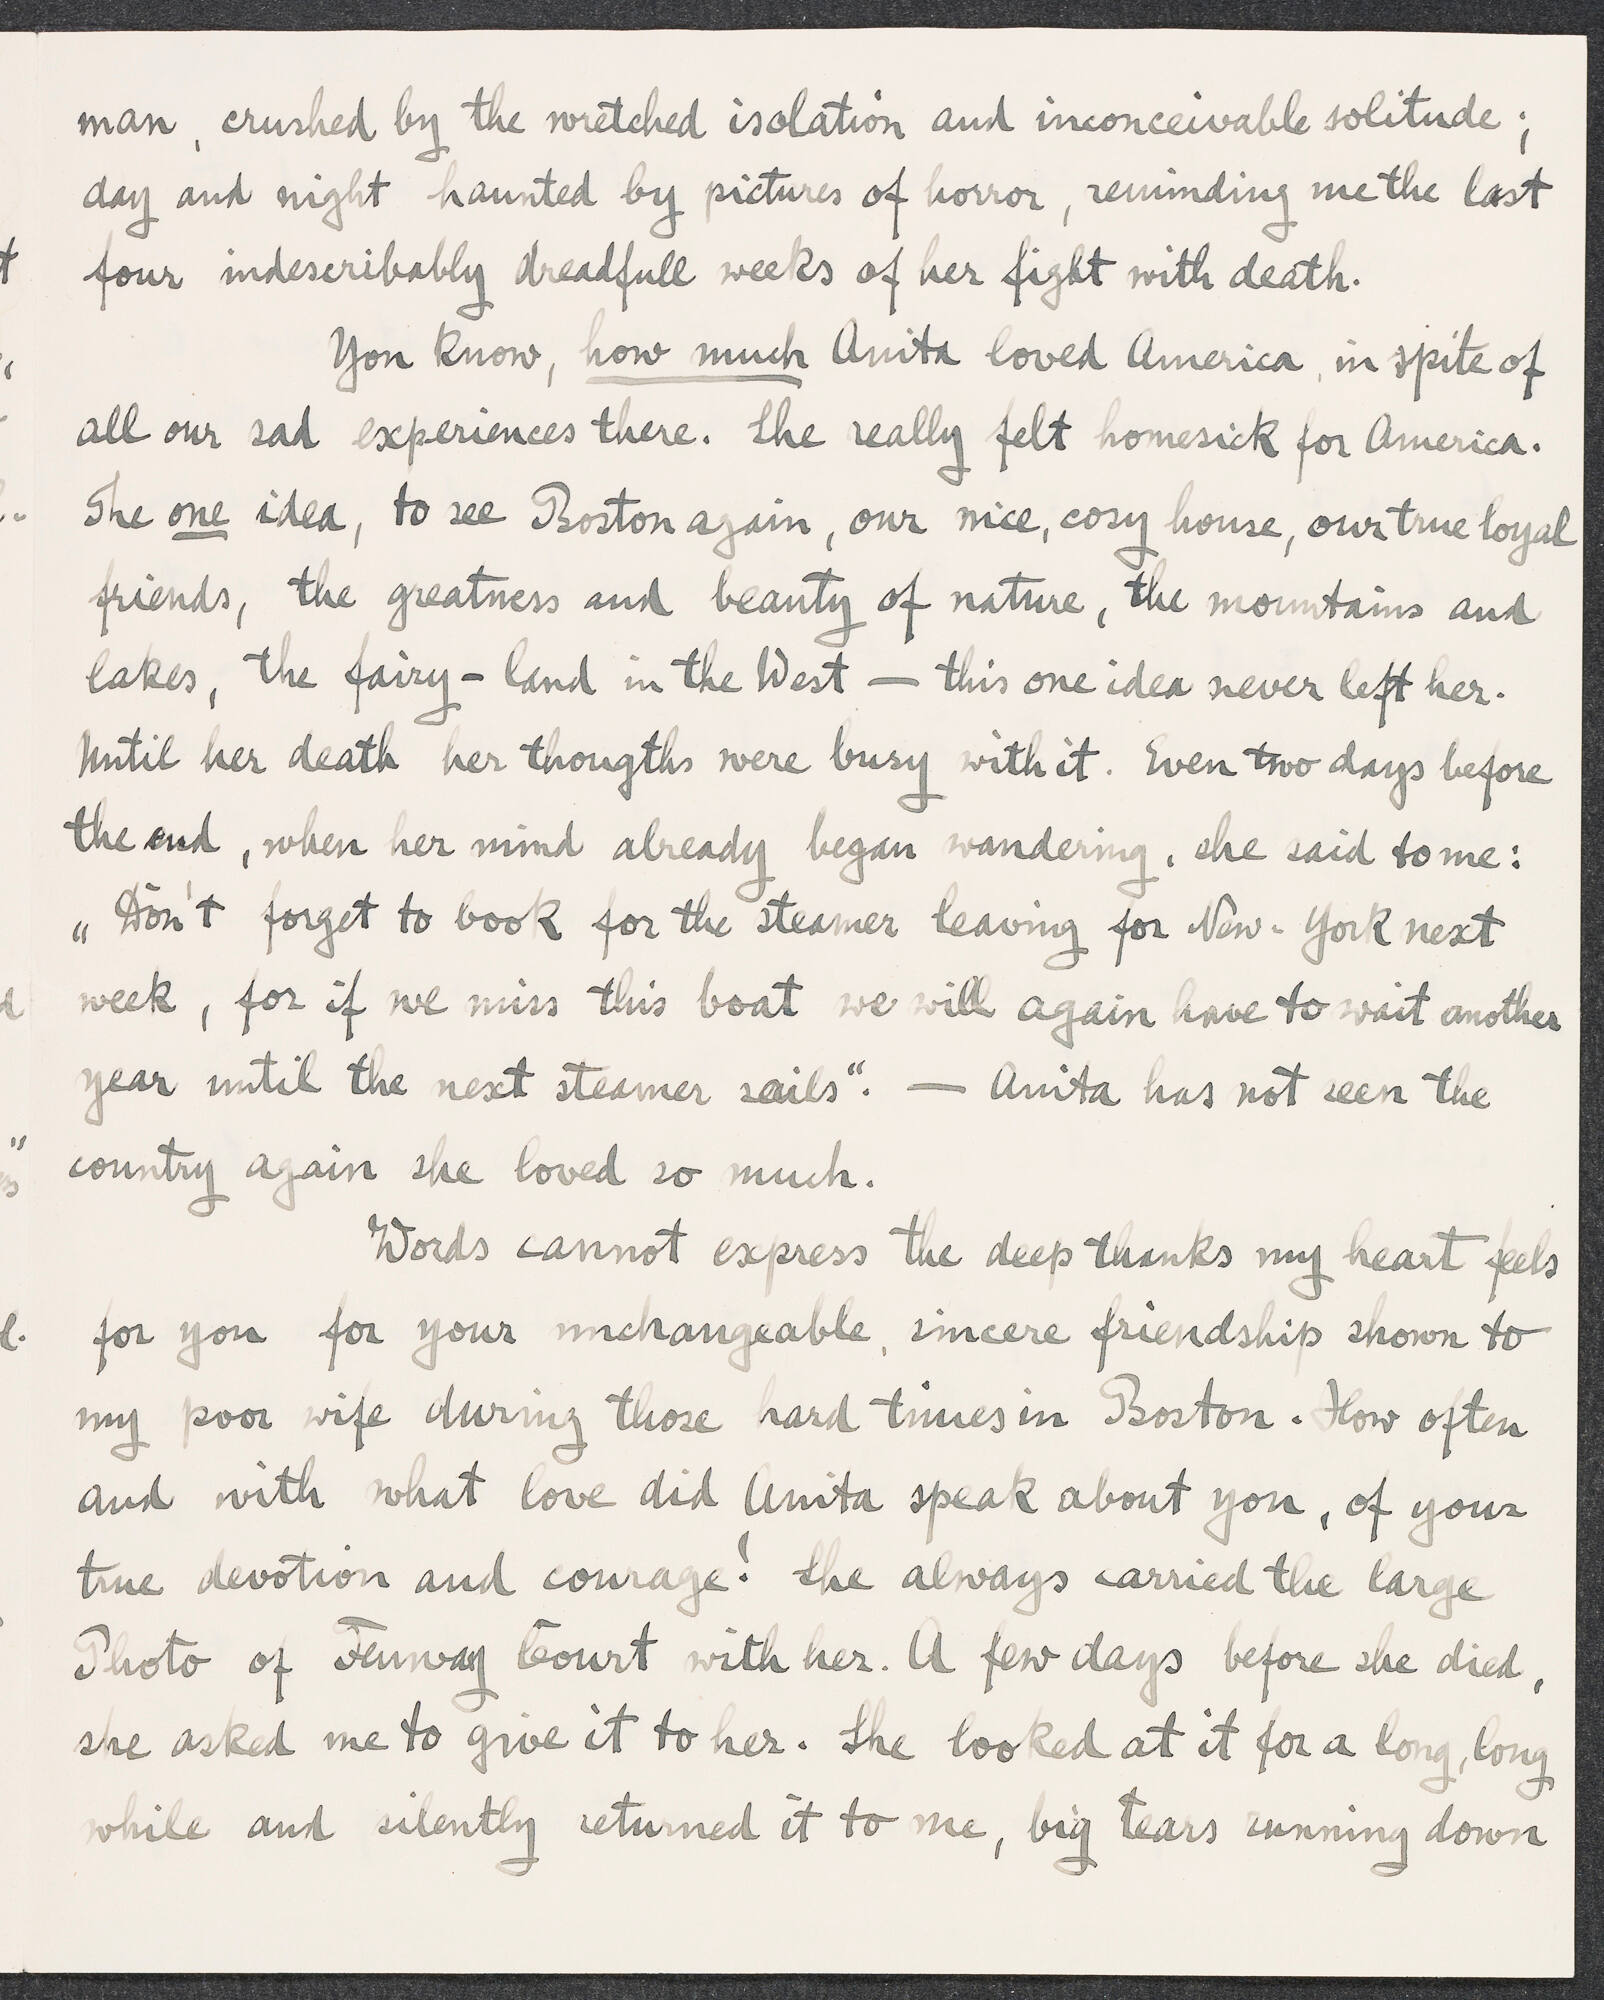 man, crushed by the wretched isolation and inconceivable solitude;
day and night haunted by pictures of horror, reminding me the last
four indescribably dreadfull weeks of her fight with death.
You know, how much Anita loved America, in spite of
all our sad experiences there. She really felt homesick for America.
The one idea, to see Boston again, our nice, cosy house, our true loyal
friends, the greatness and beauty of nature, the mountains and
lakes, the fairy-land in the West — this one idea never left her.
Until her death her thougths were busy with it. Even two days before
the end, when her mind already began wandering, she said to me:
„Don't forget to book for the steamer leaving for New-York next
week, for if we miss this boat we will again have to wait another
year until the next steamer sails“. — Anita has not seen the
country again she loved so much.
Words cannot express the deep thanks my heart feels
for you for your unchangeable, sincere friendship shown to
my poor wife during those hard times in Boston. How often
and with what love did Anita speak about you, of your
true devotion and courage! She always carried the large
Photo of Fenway Court with her. A few days before she died,
she asked me to give it to her. She looked at it for a long, long
while and silently returned it to me, big tears running down